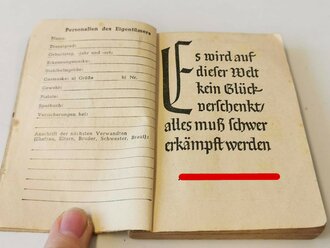 Personalien des Eigentümers
Name:
Dienstgrad:
Geburtstag, -jahr und -ort:
Erkennungsmarke:
Stahlhelmgröße:
Gasmaske: a) Größe b) Nr.
Gewehr:
Pistole:
Sparbuch:
Versicherungen, bei:
Anschrift der nächsten Verwandten
(Ehefrau, Eltern, Brüder, Schwester, Braut):
Es wird auf
dieser Welt
kein Glück
verschenkt/
alles muß schwer
erkämpft werden